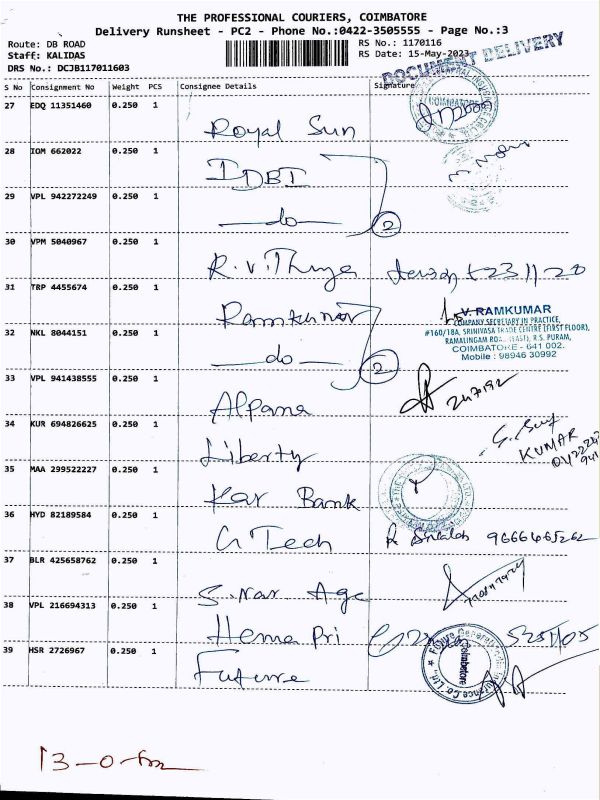 THE PROFESSIONAL COURIERS, COIMBATORE
Delivery Runsheet - PC2 - Phone No.:0422-3505555 - Page No.:3
Route: DB ROAD RS No.: 1170116
Staff: KALIDAS RS Date: 15-May-2023
DRS No.: DCJB117011603 DOCUMENT DELIVERY
S No Consignment No Weight PCS Consignee Details Signature
27 EDQ 11351460 0.250 1 Royal Sun
COIMBATORE
28 IOM 662022 0.250 1 IDBI
29 VPL 942272249 0.250 1 — do — 2
30 VPM 5040967 0.250 1 R. V. Thuya
31 TRP 4455674 0.250 1 Ramkumar
V. RAMKUMAR
COMPANY SECRETARY IN PRACTICE,
#160/18A, SRINIVASA TRADE CENTRE (FIRST FLOOR),
RAMALINGAM ROAD (EAST), R.S. PURAM,
COIMBATORE - 641 002.
Mobile : 98946 30992
32 NKL 8044151 0.250 1 — do — 2
33 VPL 941438555 0.250 1 Alpana 247192
34 KUR 694826625 0.250 1 Liberty
KUMAR
35 MAA 299522227 0.250 1 Kar Bank
36 HYD 82189584 0.250 1 G Tech
37 BLR 425658762 0.250 1 S. Nar Age
38 VPL 216694313 0.250 1 Hema Pri
39 HSR 2726967 0.250 1 Future
Future Generali
Coimbatore